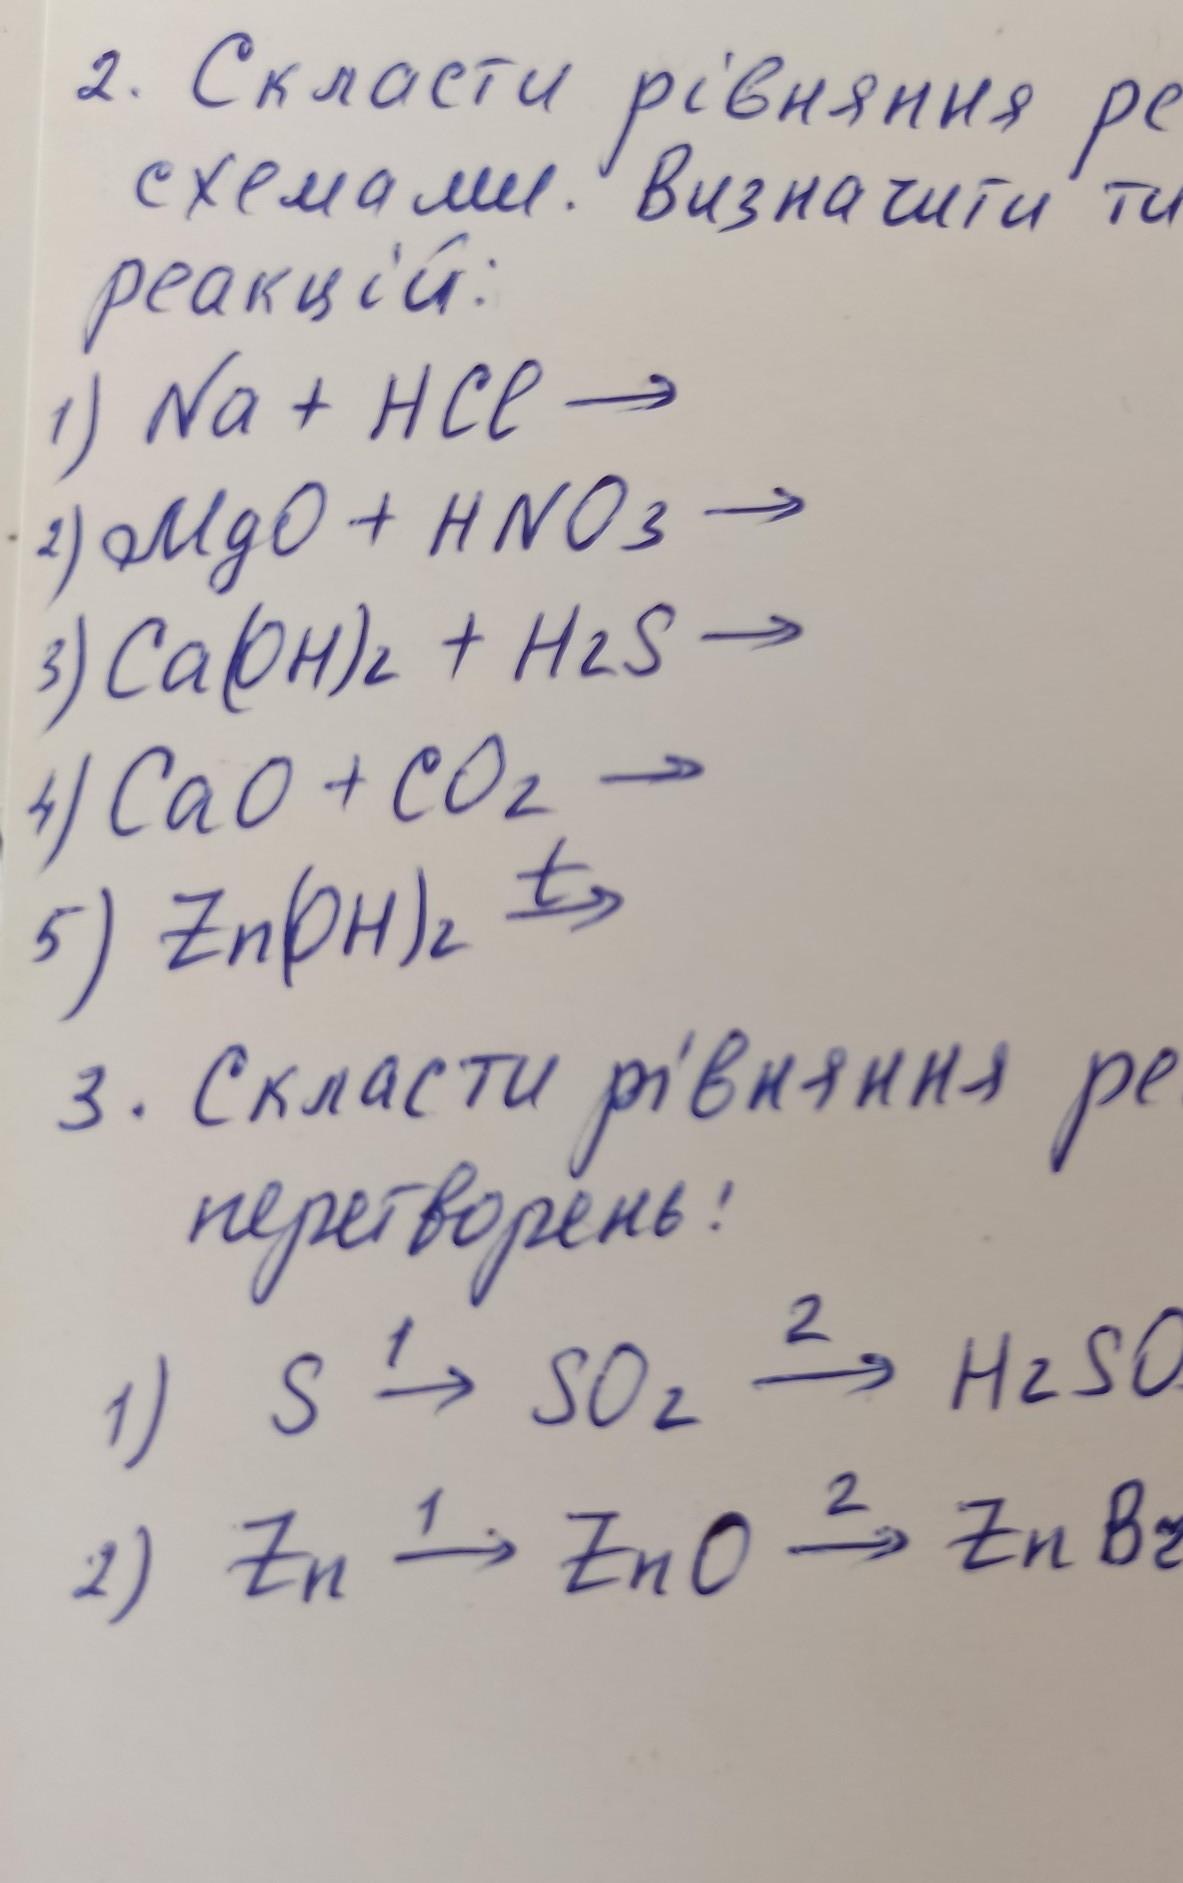 2. Скласти рівняння ре
схемами. Визначити ти
реакцій:
1) Na + HCl →
2) MgO + HNO3 →
3) Ca(OH)2 + H2S →
4) CaO + CO2 →
5) Zn(OH)2 t→
3. Скласти рівняння ре
перетворень:
1) S 1→ SO2 2→ H2SO
2) Zn 1→ ZnO 2→ ZnBr